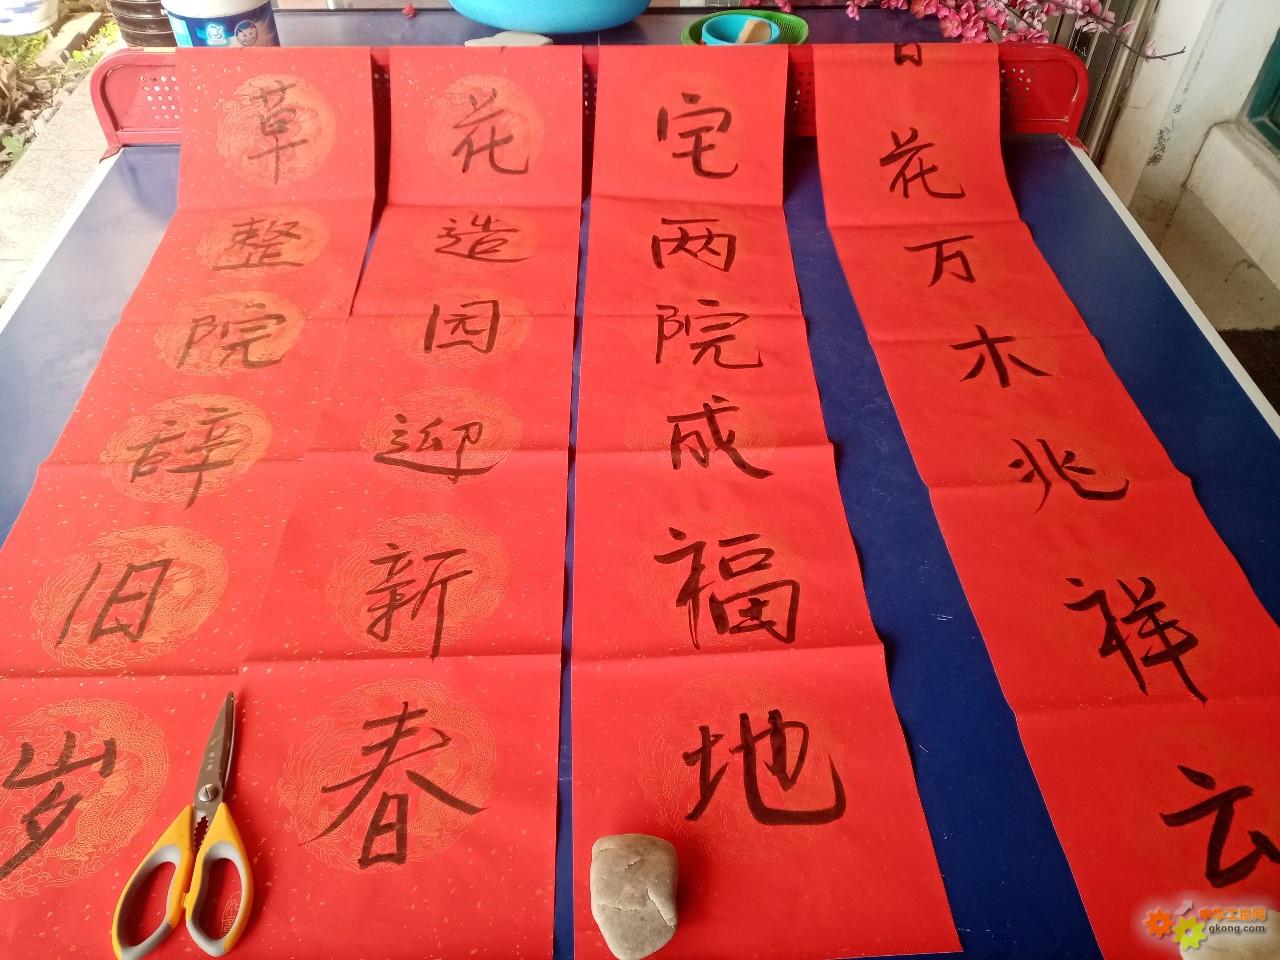 草整院辞旧岁
花造园迎新春
宅两院成福地
花万木兆祥云
中华工控网
gkong.com